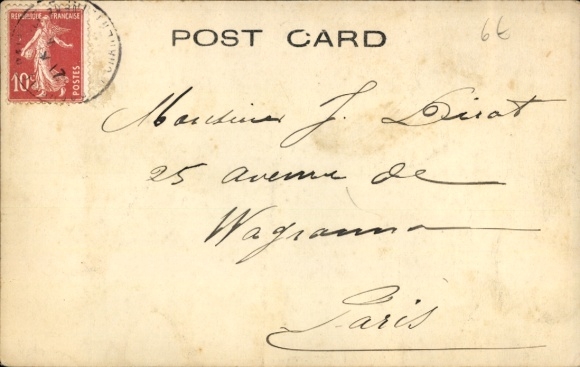 REPUBLIQUE FRANÇAISE
10c
POSTES
POST CARD
Monsieur J. Dirat
25 avenue de
Wagramm
Paris